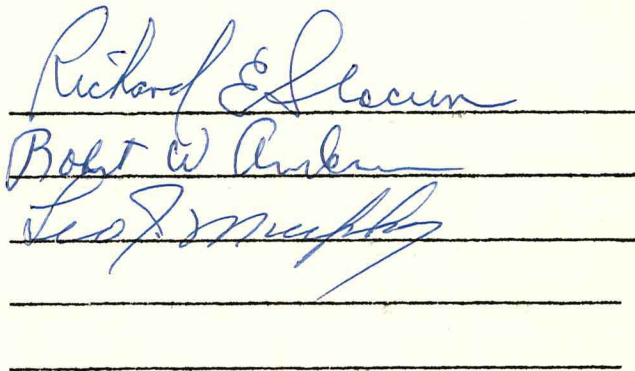 Richard E Slocum
Robert W Anderson
Leo J. Murphy